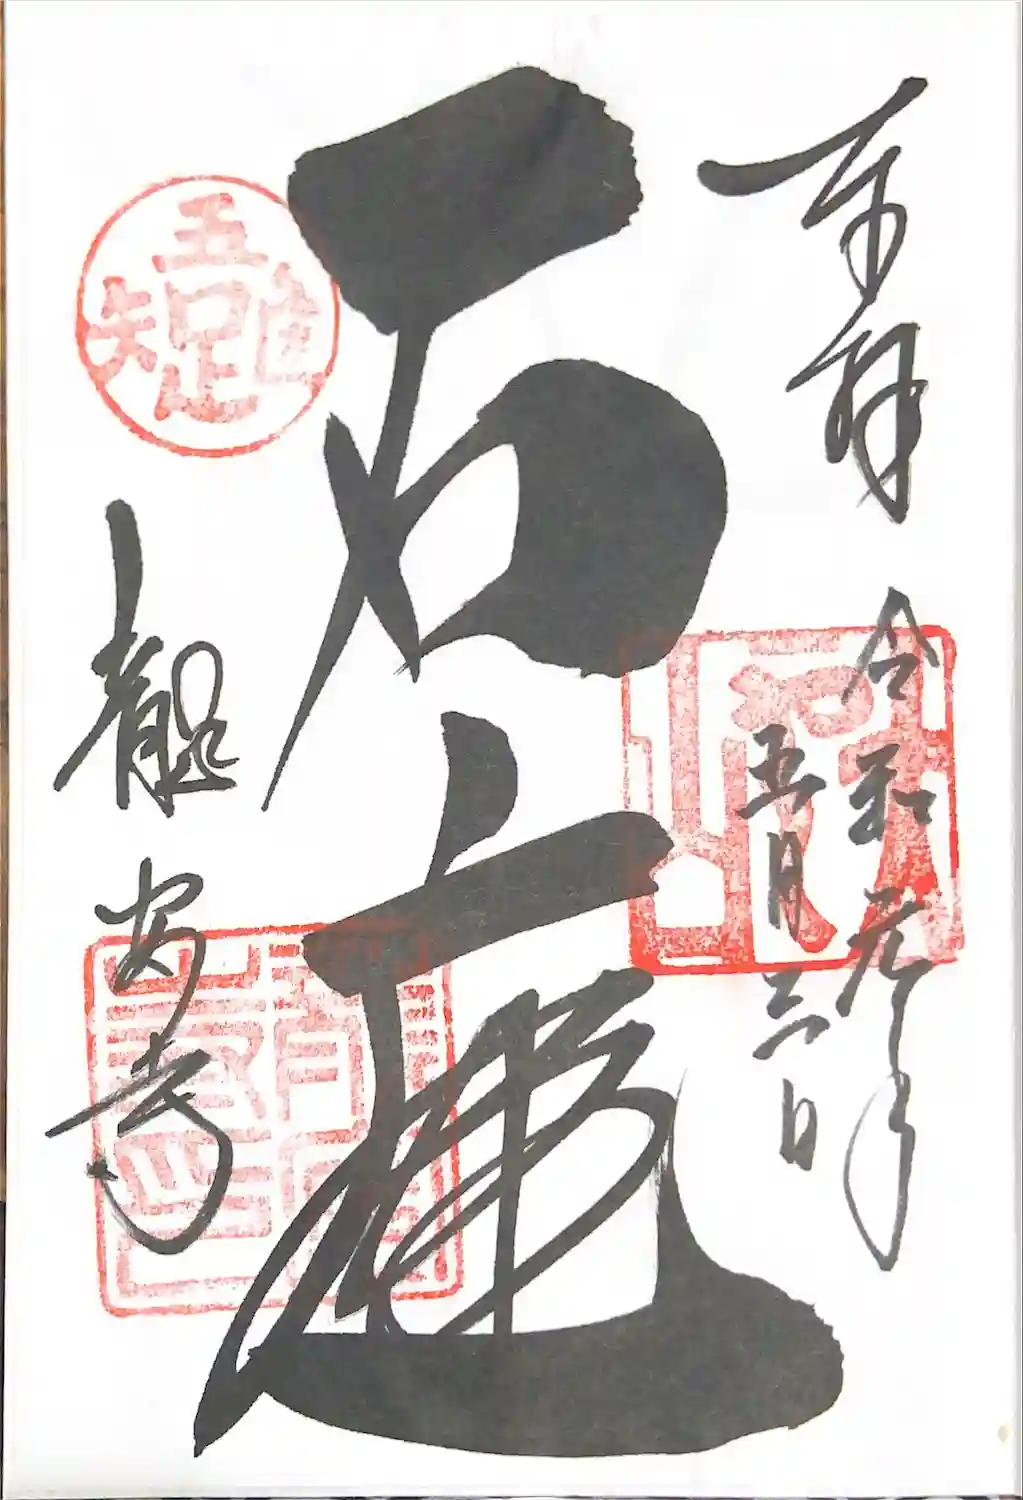 奉拝
令和元年
五月三日
石庭
龍安寺
吾唯足知